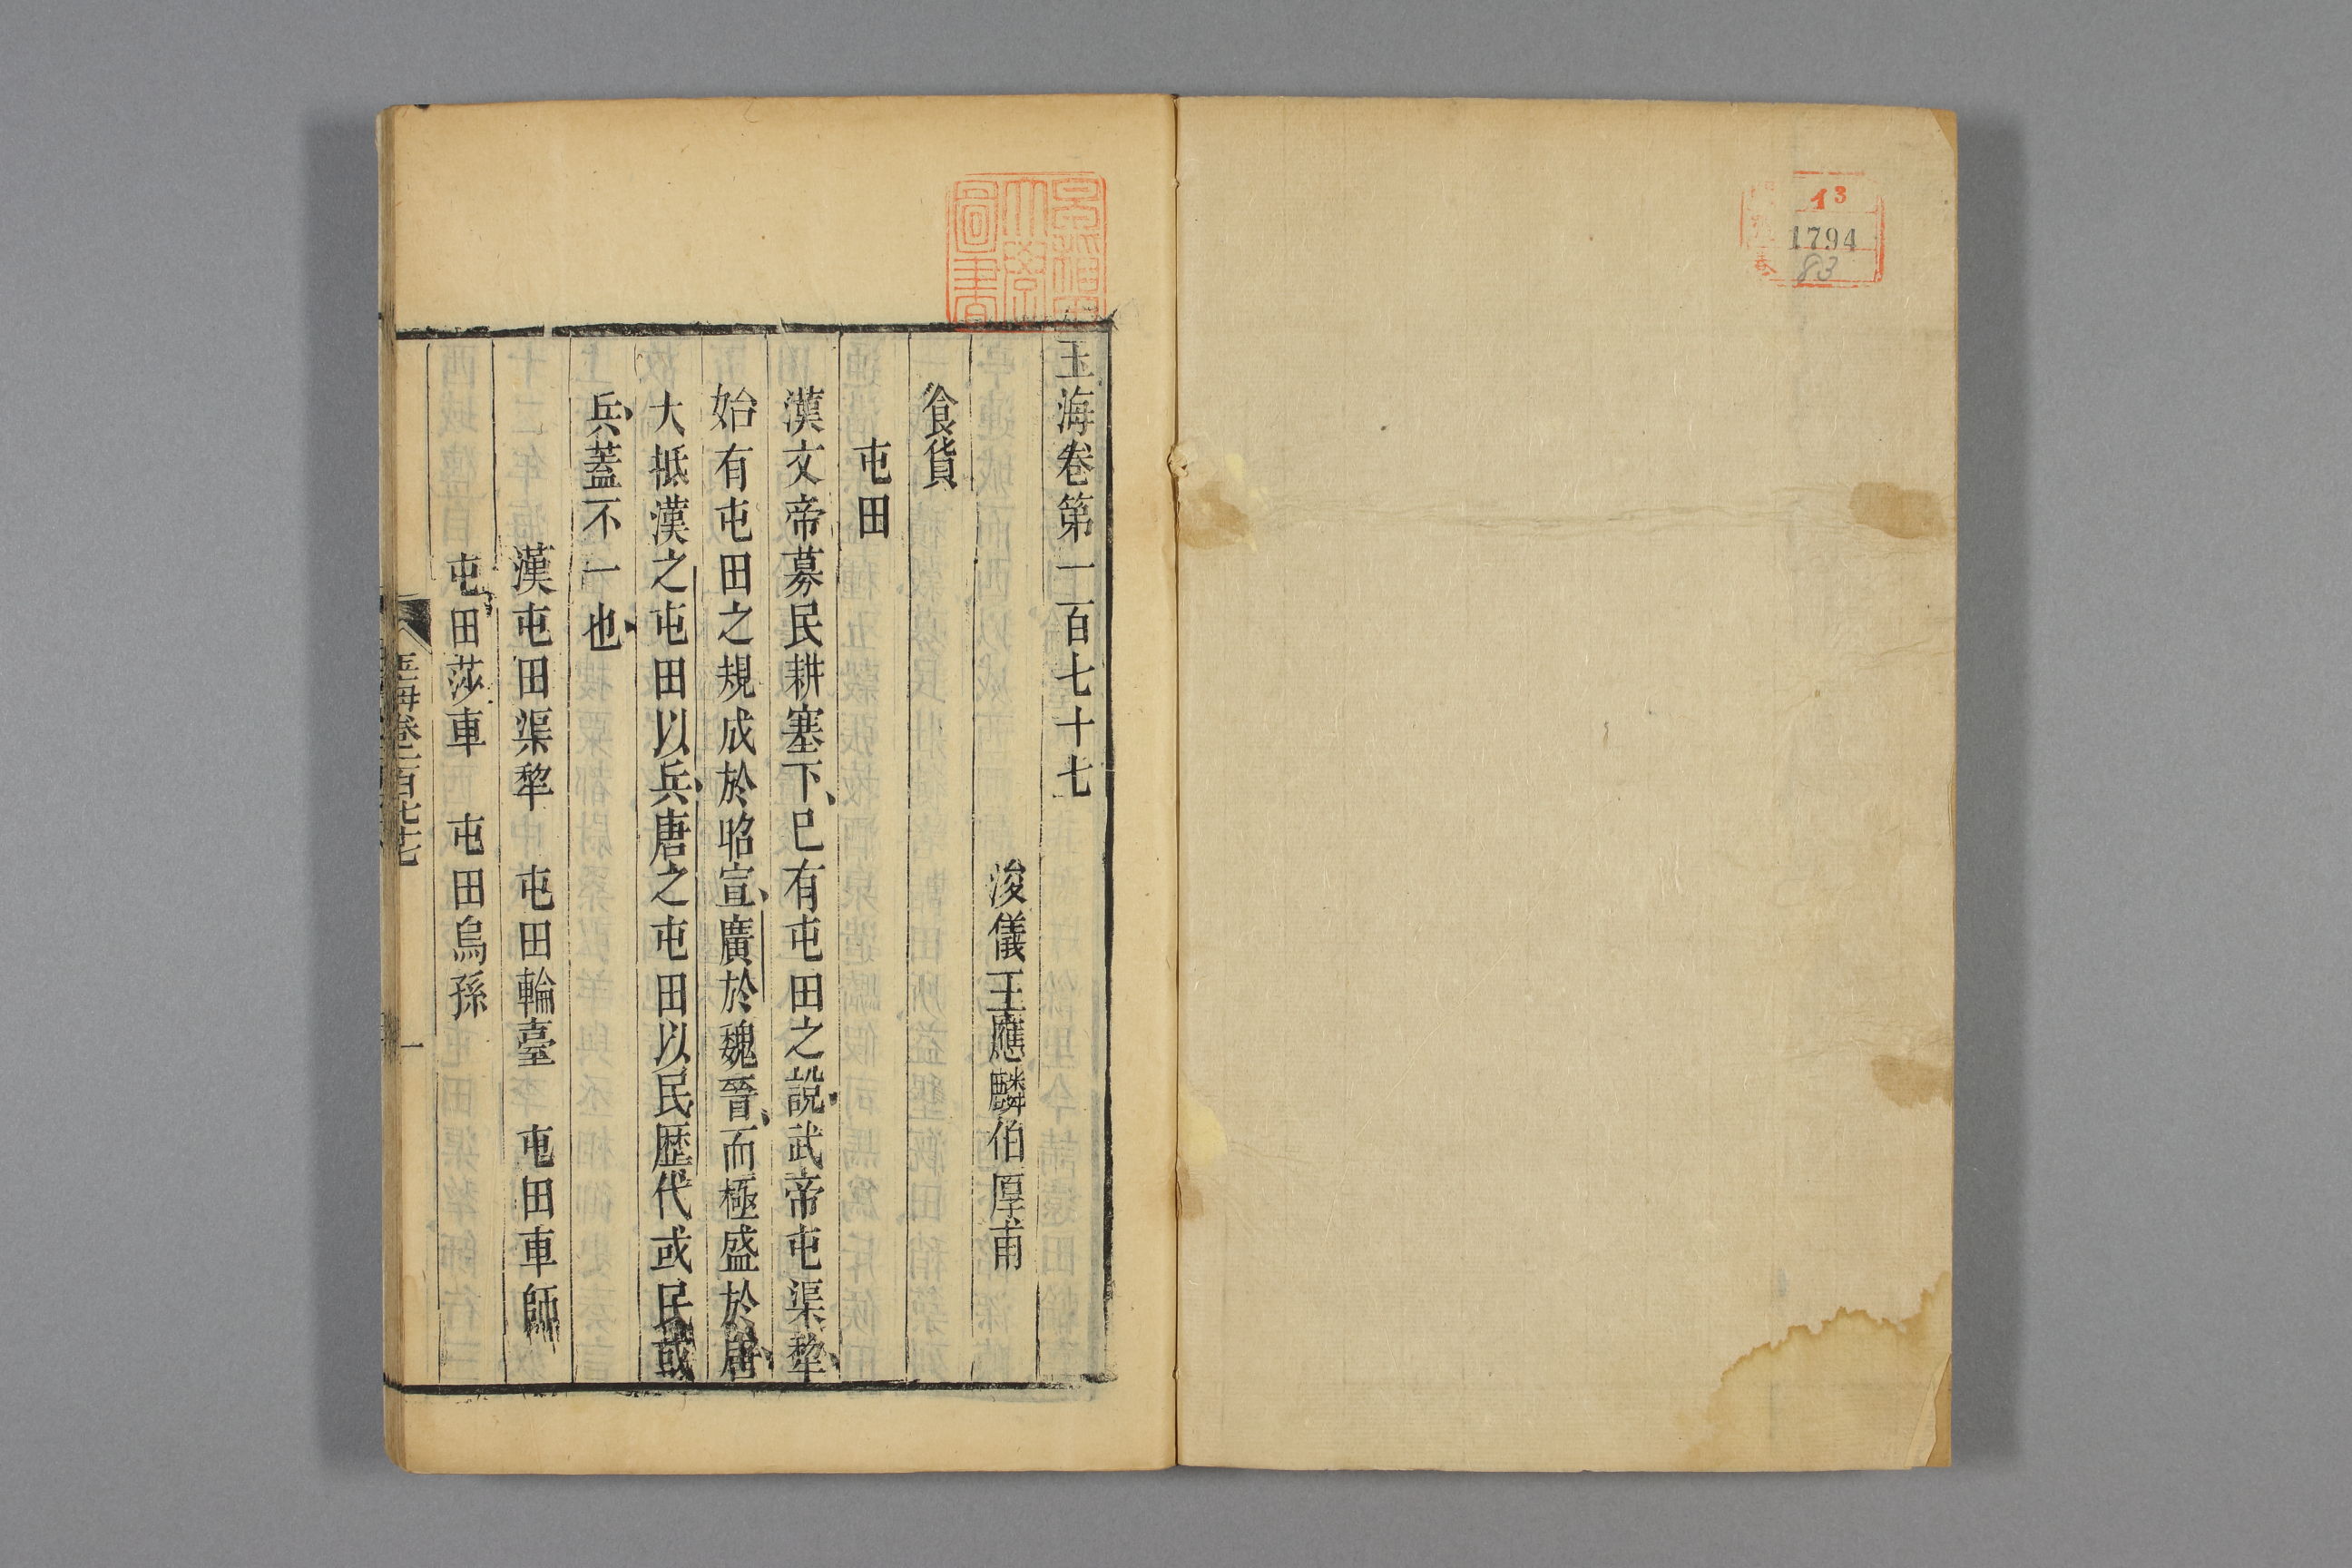 13
1794
83
玉海卷第一百七十七
浚儀王應麟伯厚甫
食貨
屯田
漢文帝募民耕塞下已有屯田之説武帝屯渠犂
始有屯田之規成於昭宣廣於魏晉而極盛於唐
大抵漢之屯田以兵唐之屯田以民歷代或民或
兵蓋不一也
漢屯田渠犂　屯田輪臺　屯田車師
屯田莎車　屯田烏孫
玉海卷一百七十七
一
圖書